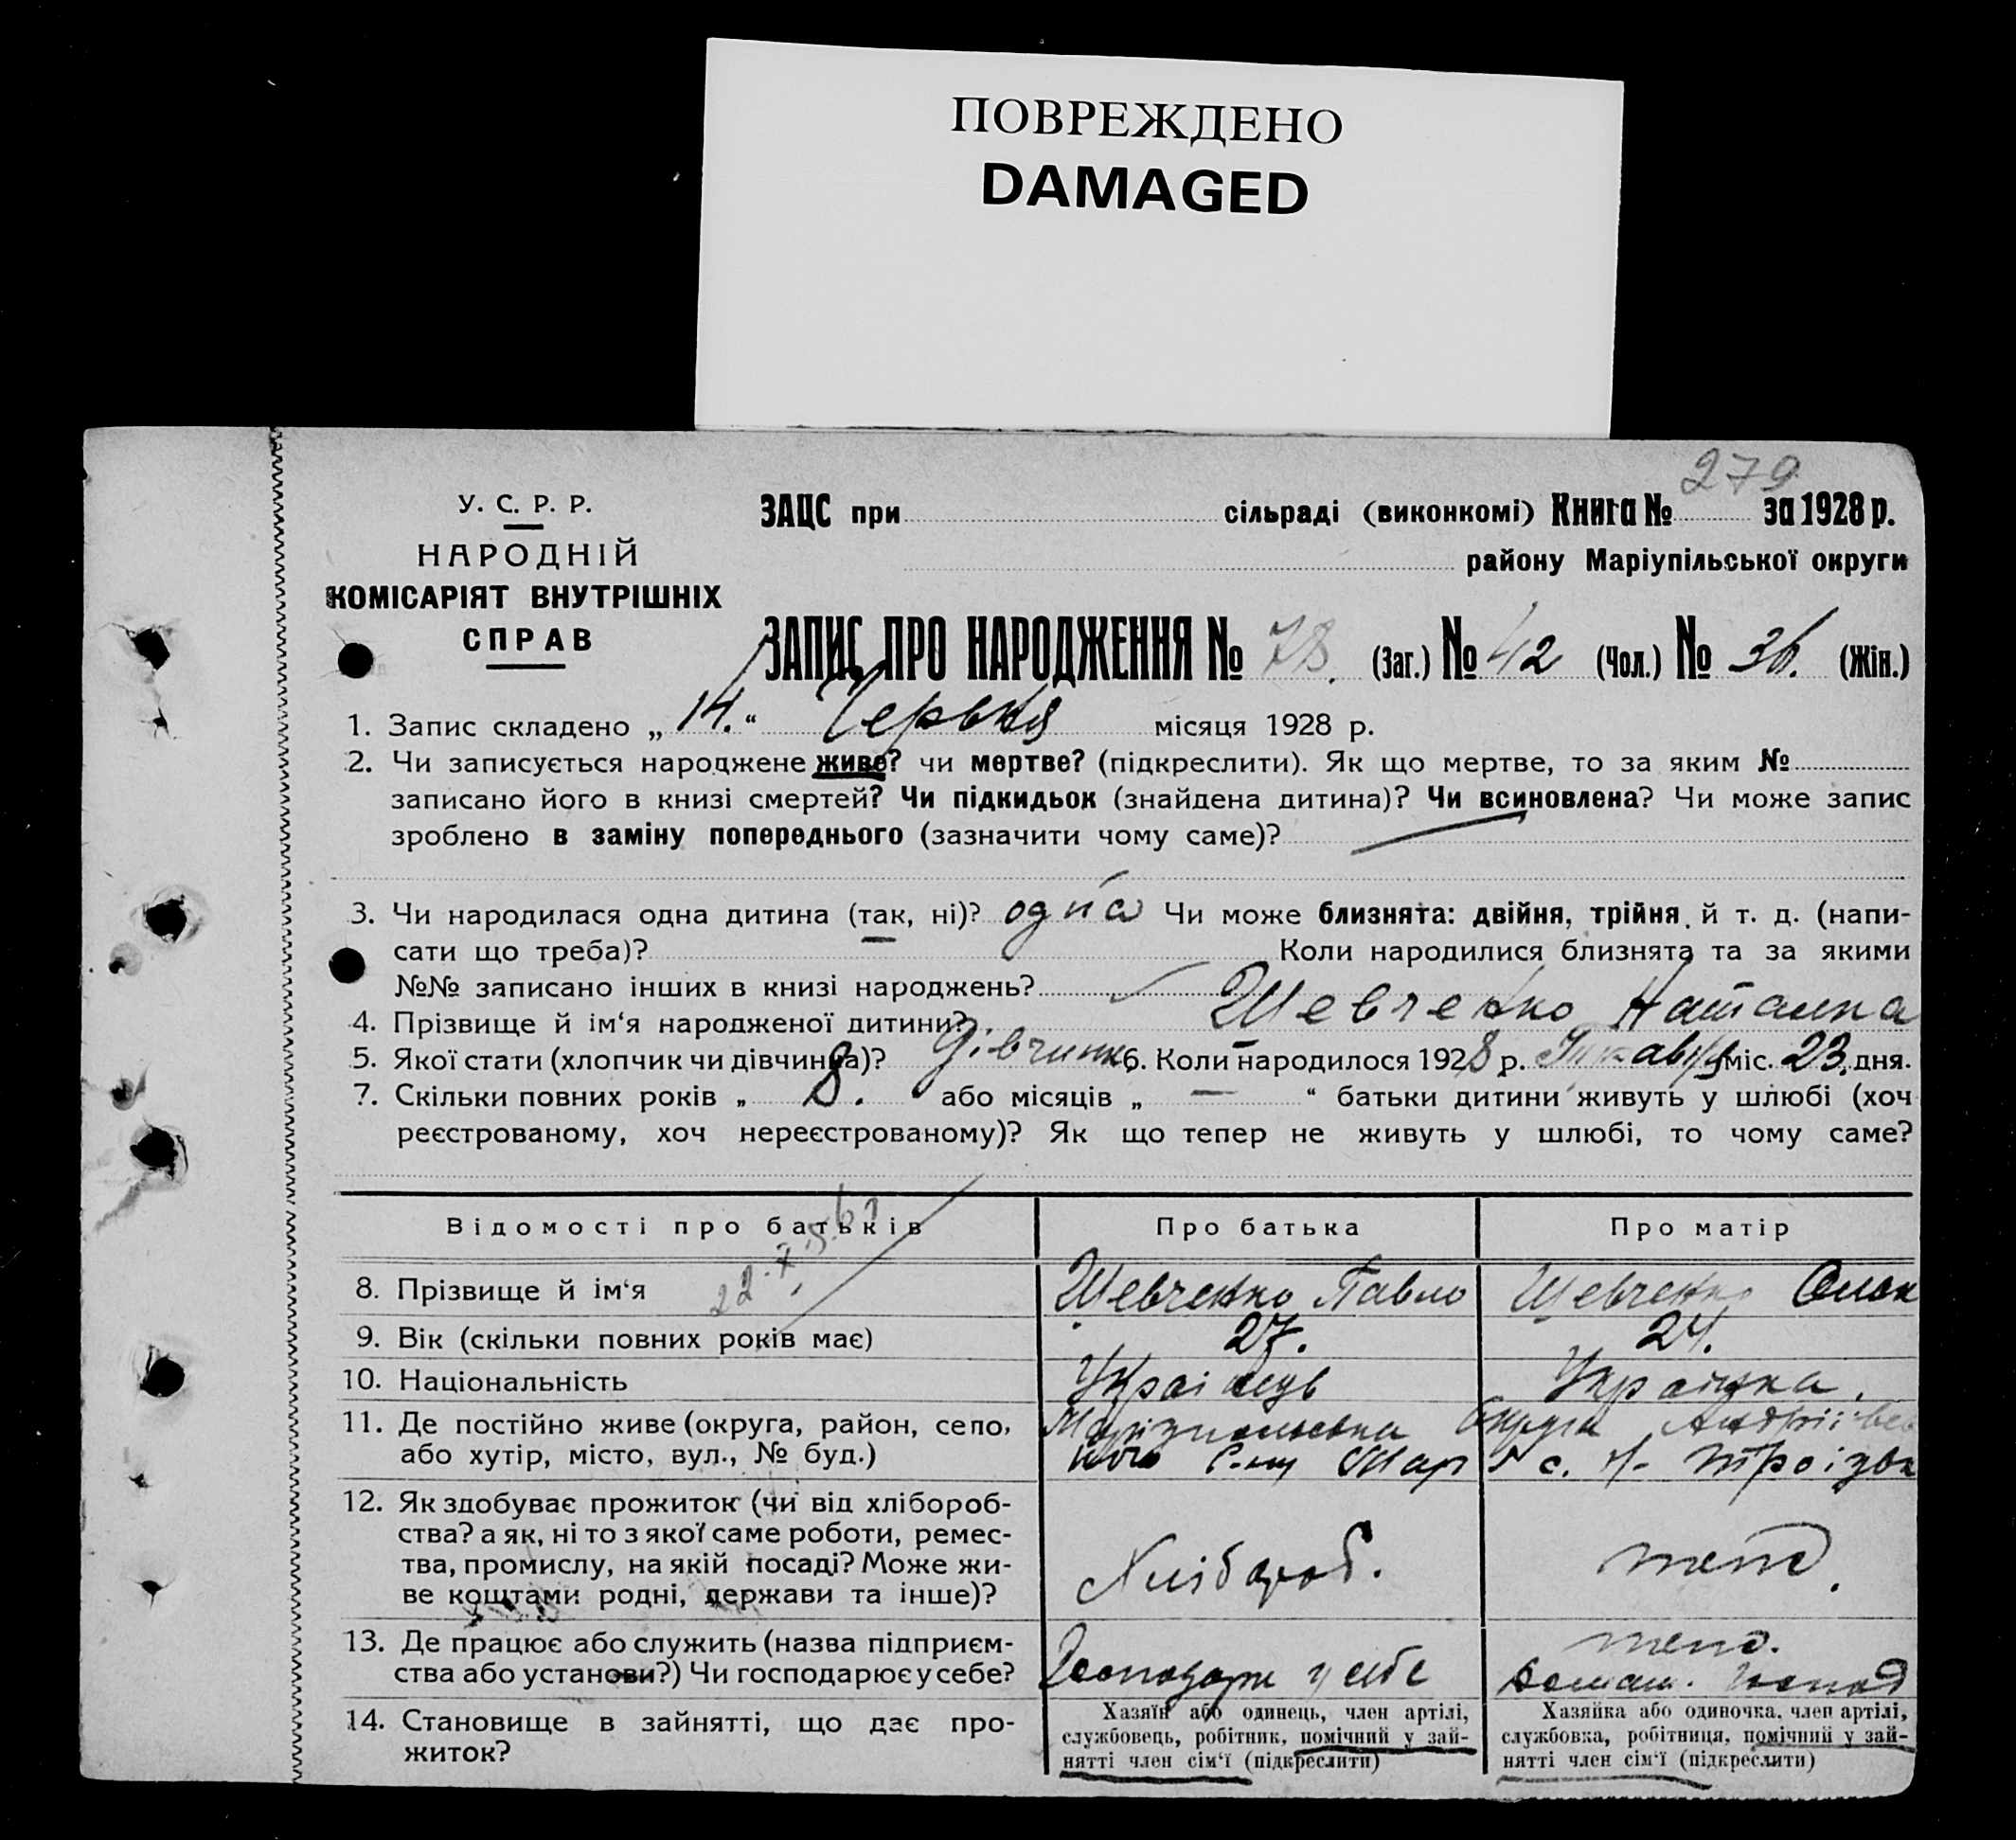 ПОВРЕЖДЕНО
DAMAGED
279
У. С. Р. Р.
НАРОДНІЙ
КОМІСАРІЯТ ВНУТРІШНІХ
СПРАВ
ЗАЦС при сільраді (виконкомі) Книга № за 1928 р.
району Маріупільської округи
ЗАПИС ПРО НАРОДЖЕННЯ № 78. (Заг.) № 42 (Чол.) № 36. (Жін.)
1. Запис складено „ 14. “ Червня місяця 1928 р.
2. Чи записується народжене живе? чи мертве? (підкреслити). Як що мертве, то за яким №
записано його в книзі смертей? Чи підкидьок (знайдена дитина)? Чи всиновлена? Чи може запис
зроблено в заміну попереднього (зазначити чому саме)?
3. Чи народилася одна дитина (так, ні)? одна Чи може близнята: двійня, трійня й т. д. (напи-
сати що треба)? Коли народилися близнята та за якими
№№ записано інших в книзі народжень?
4. Прізвище й ім‘я народженої дитини? Шевченко Наталка
5. Якої стати (хлопчик чи дівчинка)? Дівчинк 6. Коли народилося 1928 р. міс. 23. дня.
7. Скільки повних років „ 8. або місяців „ — “ батьки дитини живуть у шлюбі (хоч
реєстрованому, хоч нереєстрованому)? Як що тепер не живуть у шлюбі, то чому саме?
Відомості про батьків Про батька Про матір
8. Прізвище й ім‘я Шевченко Павло Шевченко
9. Вік (скільки повних років має) 27. 24.
10. Національність Українець Українка.
11. Де постійно живе (округа, район, село,
або хутір, місто, вул., № буд.)
Маріупольська Округа
с. Н-Троїцьк
12. Як здобуває прожиток (чи від хлібороб-
ства? а як, ні то з якої саме роботи, ремес-
тва, промислу, на якій посаді? Може жи-
ве коштами родні, держави та інше)?
Хлібороб.
теж.
13. Де працює або служить (назва підприєм-
ства або установи?) Чи господарює у себе?
у себе
14. Становище в зайнятті, що дає про-
житок?
Хазяїн або одинець, член артілі,
службовець, робітник, помічний у зай-
нятті член сім‘ї (підкреслити)
Хазяйка або одиночка, член артілі,
службовка, робітниця, помічний у зай-
нятті член сім‘ї (підкреслити)